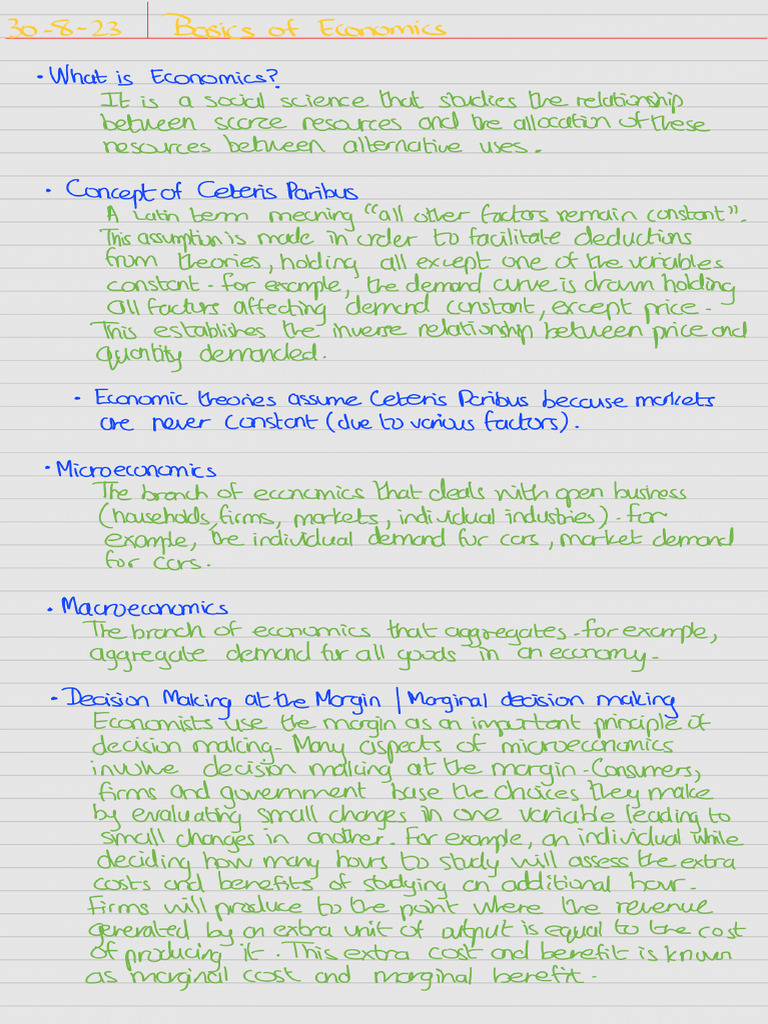 30-8-23 | Basics of Economics
• What is Economics?
It is a social science that studies the relationship
between scarce resources and the allocation of these
resources between alternative uses.
• Concept of Ceteris Paribus
A Latin term meaning "all other factors remain constant".
This assumption is made in order to facilitate deductions
from theories, holding all except one of the variables
constant. For example, the demand curve is drawn holding
all factors affecting demand constant, except price.
This establishes the inverse relationship between price and
quantity demanded.
• Economic theories assume Ceteris Paribus because markets
are never constant (due to various factors).
• Microeconomics
The branch of economics that deals with open business
(households, firms, markets, individual industries). For
example, the individual demand for cars, market demand
for cars.
• Macroeconomics
The branch of economics that aggregates. For example,
aggregate demand for all goods in an economy.
• Decision Making at the Margin / Marginal decision making
Economists use the margin as an important principle of
decision making. Many aspects of microeconomics
involve decision making at the margin. Consumers,
firms and government base the choices they make
by evaluating small changes in one variable leading to
small changes in another. For example, an individual while
deciding how many hours to study will assess the extra
costs and benefits of studying an additional hour.
Firms will produce to the point where the revenue
generated by an extra unit of output is equal to the cost
of producing it. This extra cost and benefit is known
as marginal cost and marginal benefit.